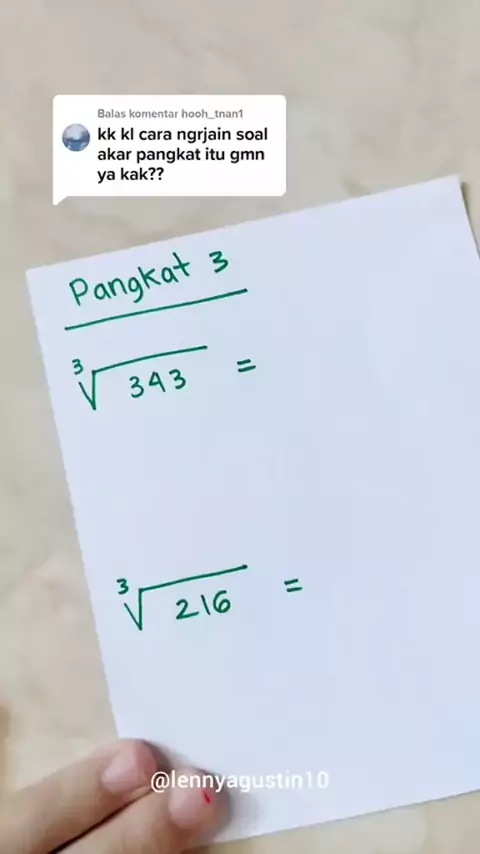 Balas komentar hooh_tnan1
kk kl cara ngrjain soal
akar pangkat itu gmn
ya kak??
Pangkat 3
3√343 =
3√216 =
@lennyagustin10